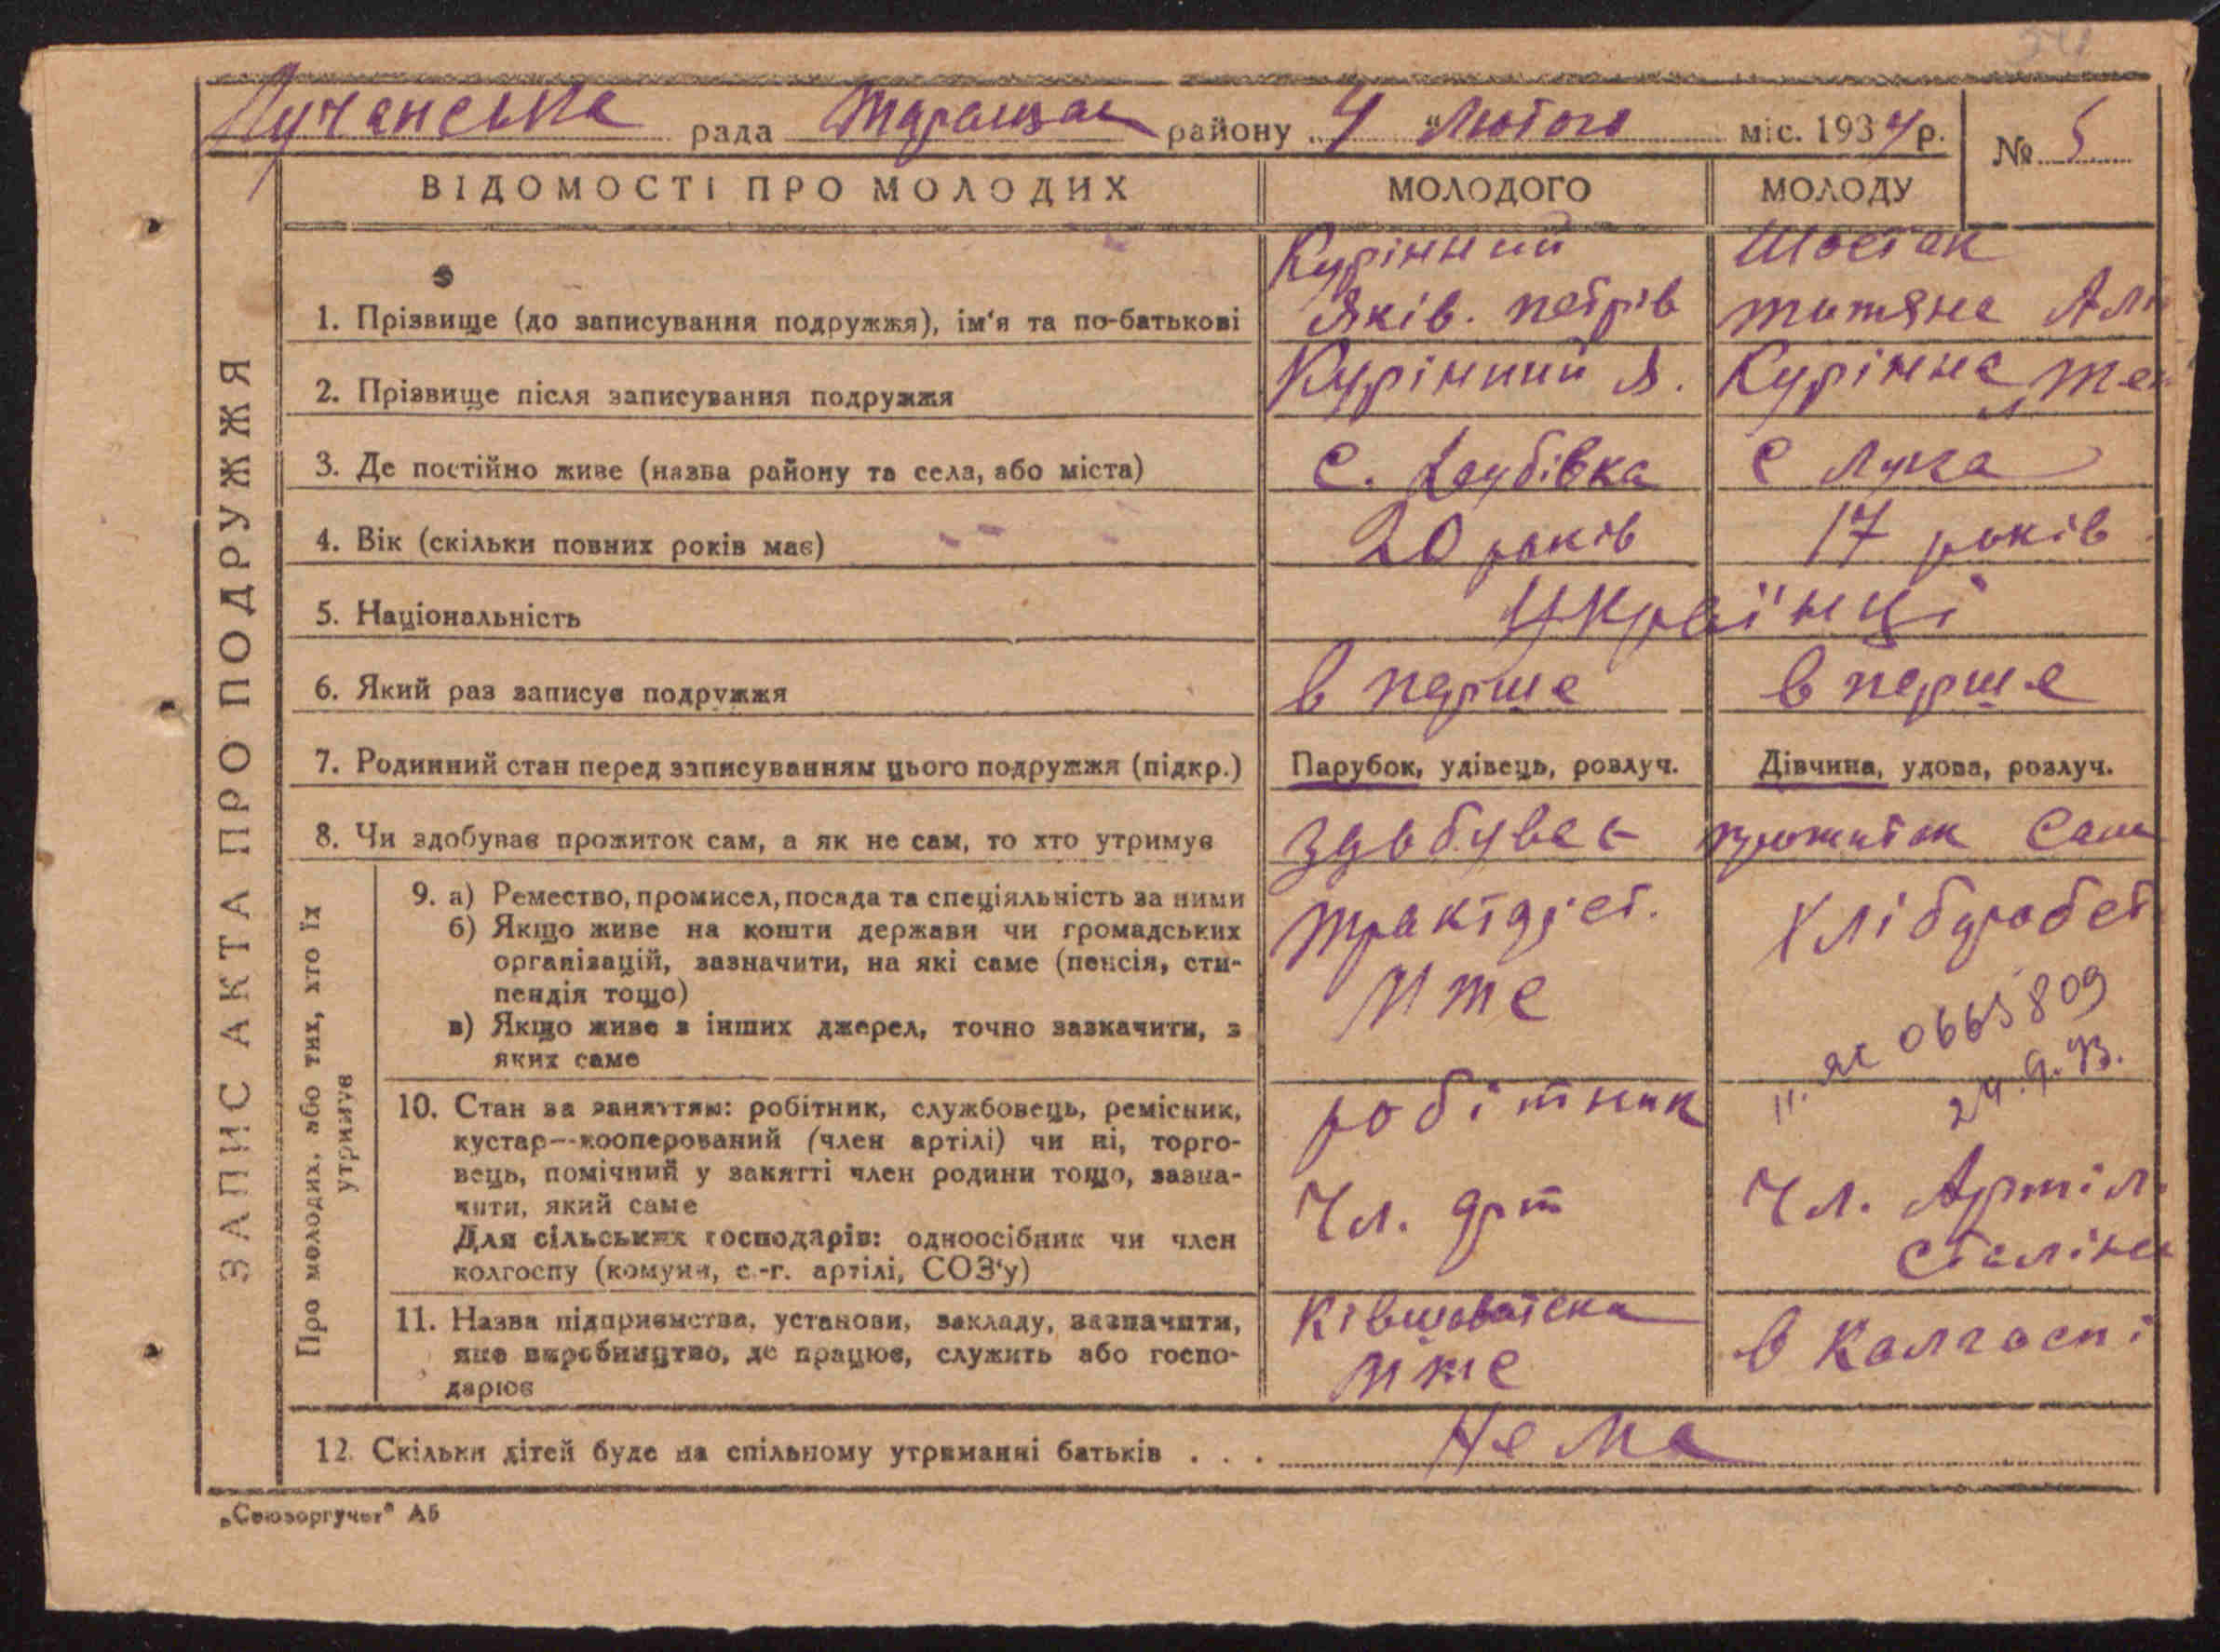 Лучанська рада Таращан району 4 "Лютого міс. 1934 р. № 5
ЗАПИС АКТА ПРО ПОДРУЖЖЯ
ВІДОМОСТІ ПРО МОЛОДИХ МОЛОДОГО МОЛОДУ
Курінний Шостак
1. Прізвище (до записування подружжя), ім'я та по-батькові Яків. петрів титяна
2. Прізвище після записування подружжя Курінний Я. Курінна
3. Де постійно живе (назва району та села, або міста) С. С Лука
4. Вік (скільки повних років має) 20 років 17 років
5. Національність Українці
6. Який раз записує подружжя в перше в перше
7. Родинний стан перед записуванням цього подружжя (підкр.) Парубок, удівець, розлуч. Дівчина, удова, розлуч.
8. Чи здобуває прожиток сам, а як не сам, то хто утримує здобуває прожиток Сам
Про молодих, або тих, хто їх утримує
9. а) Ремество, промисел, посада та спеціяльність за ними
б) Якщо живе на кошти держави чи громадських
організацій, зазначити, на які саме (пенсія, сти-
пендія тощо)
в) Якщо живе з інших джерел, точно зазначити, з
яких саме
Хлібуробст
МТС
0665809
24.9.93.
10. Стан за заняттям: робітник, службовець, ремісник,
кустар--кооперований (член артілі) чи ні, торго-
вець, помічний у занятті член родини тощо, зазна-
чити, який саме
Для сільських господарів: одноосібник чи член
колгоспу (комуни, с.-г. артілі, СОЗ'у)
робітник
Чл. арт Чл. Артіл.
Сталіна
11. Назва підприємства, установи, закладу, зазначити,
яке виробництво, де працює, служить або госпо-
дарює
Ківшоватська в Калгоспі
МТС
12. Скільки дітей буде на спільному утриманні батьків . . . Нема
„Союзоргучет" А5